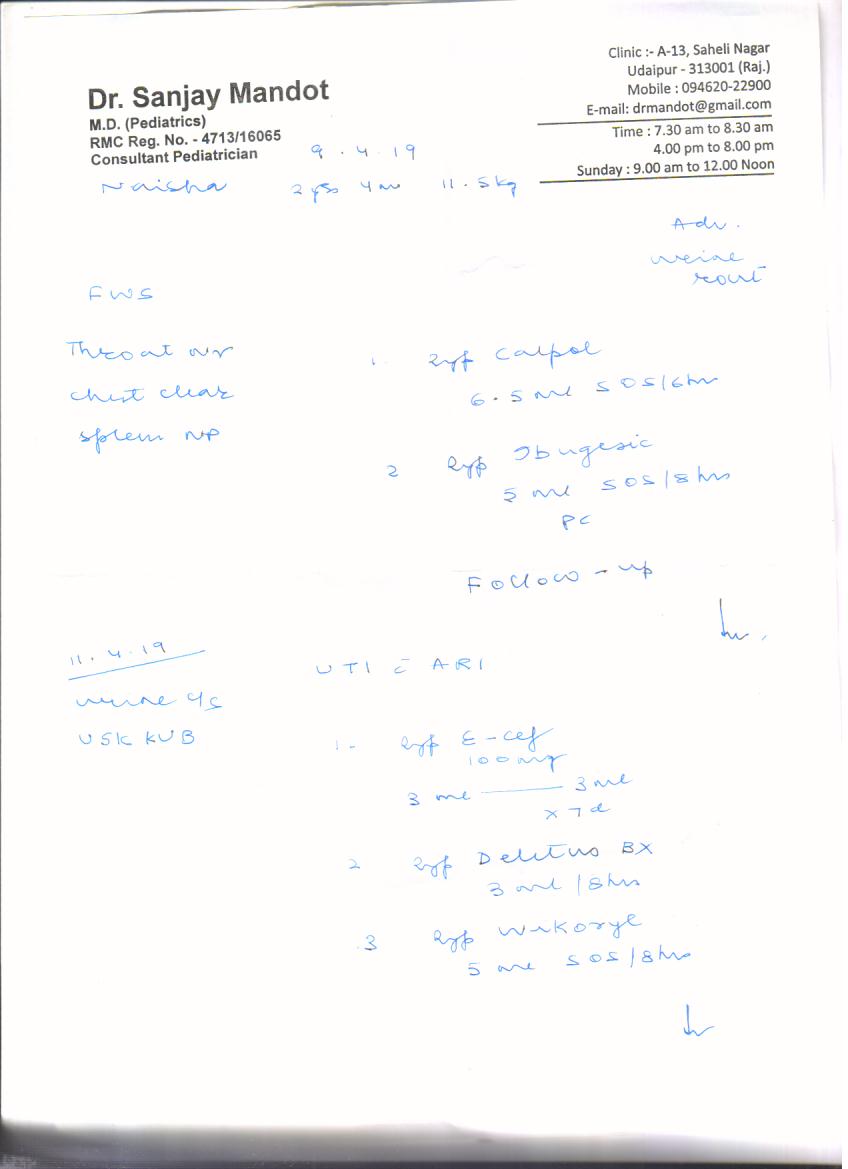 Dr. Sanjay Mandot
M.D. (Pediatrics)
RMC Reg. No. - 4713/16065
Consultant Pediatrician
Clinic :- A-13, Saheli Nagar
Udaipur - 313001 (Raj.)
Mobile : 094620-22900
E-mail: drmandot@gmail.com
Time : 7.30 am to 8.30 am
4.00 pm to 8.00 pm
Sunday : 9.00 am to 12.00 Noon
9.4.19
Naisha 2 yrs 4 m 11.5 kg
Adv.
urine
rout
FWS
Throat
chest clear
spleen NP
1. Syp Calpol
6.5 ml SOS/6hr
2 Syp Ibugesic
5 ml SOS/8hrs
PC
Follow-up
11.4.19
urine c/s
USG KUB
UTI c̄ ARI
1- Syp E-cef
100mg
3 ml — 3 ml
x 7 d
2 Syp Deletus BX
3 ml /8hrs
3 Syp Wikoryl
5 ml SOS/8hrs